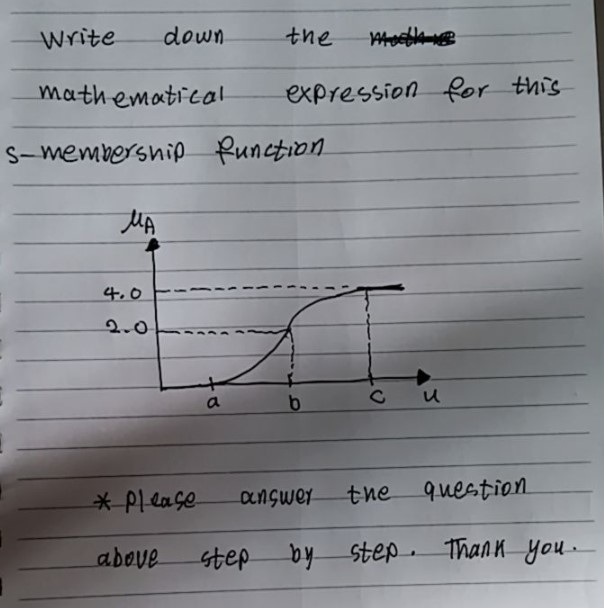 Write down the
mathematical expression for this
s-membership function
μA
4.0
2.0
a b c u
* Please answer the question
above step by step. Thank you.